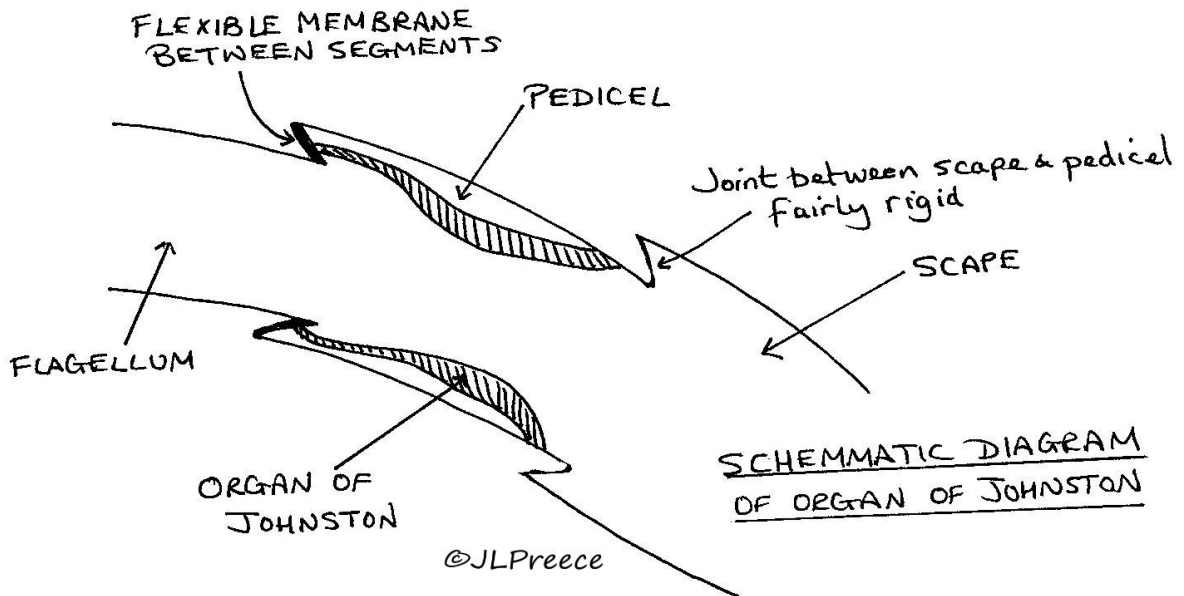 FLEXIBLE MEMBRANE
BETWEEN SEGMENTS
PEDICEL
Joint between scape & pedical
fairly rigid
SCAPE
FLAGELLUM
ORGAN OF
JOHNSTON
SCHEMMATIC DIAGRAM
OF ORGAN OF JOHNSTON
©JLPreece